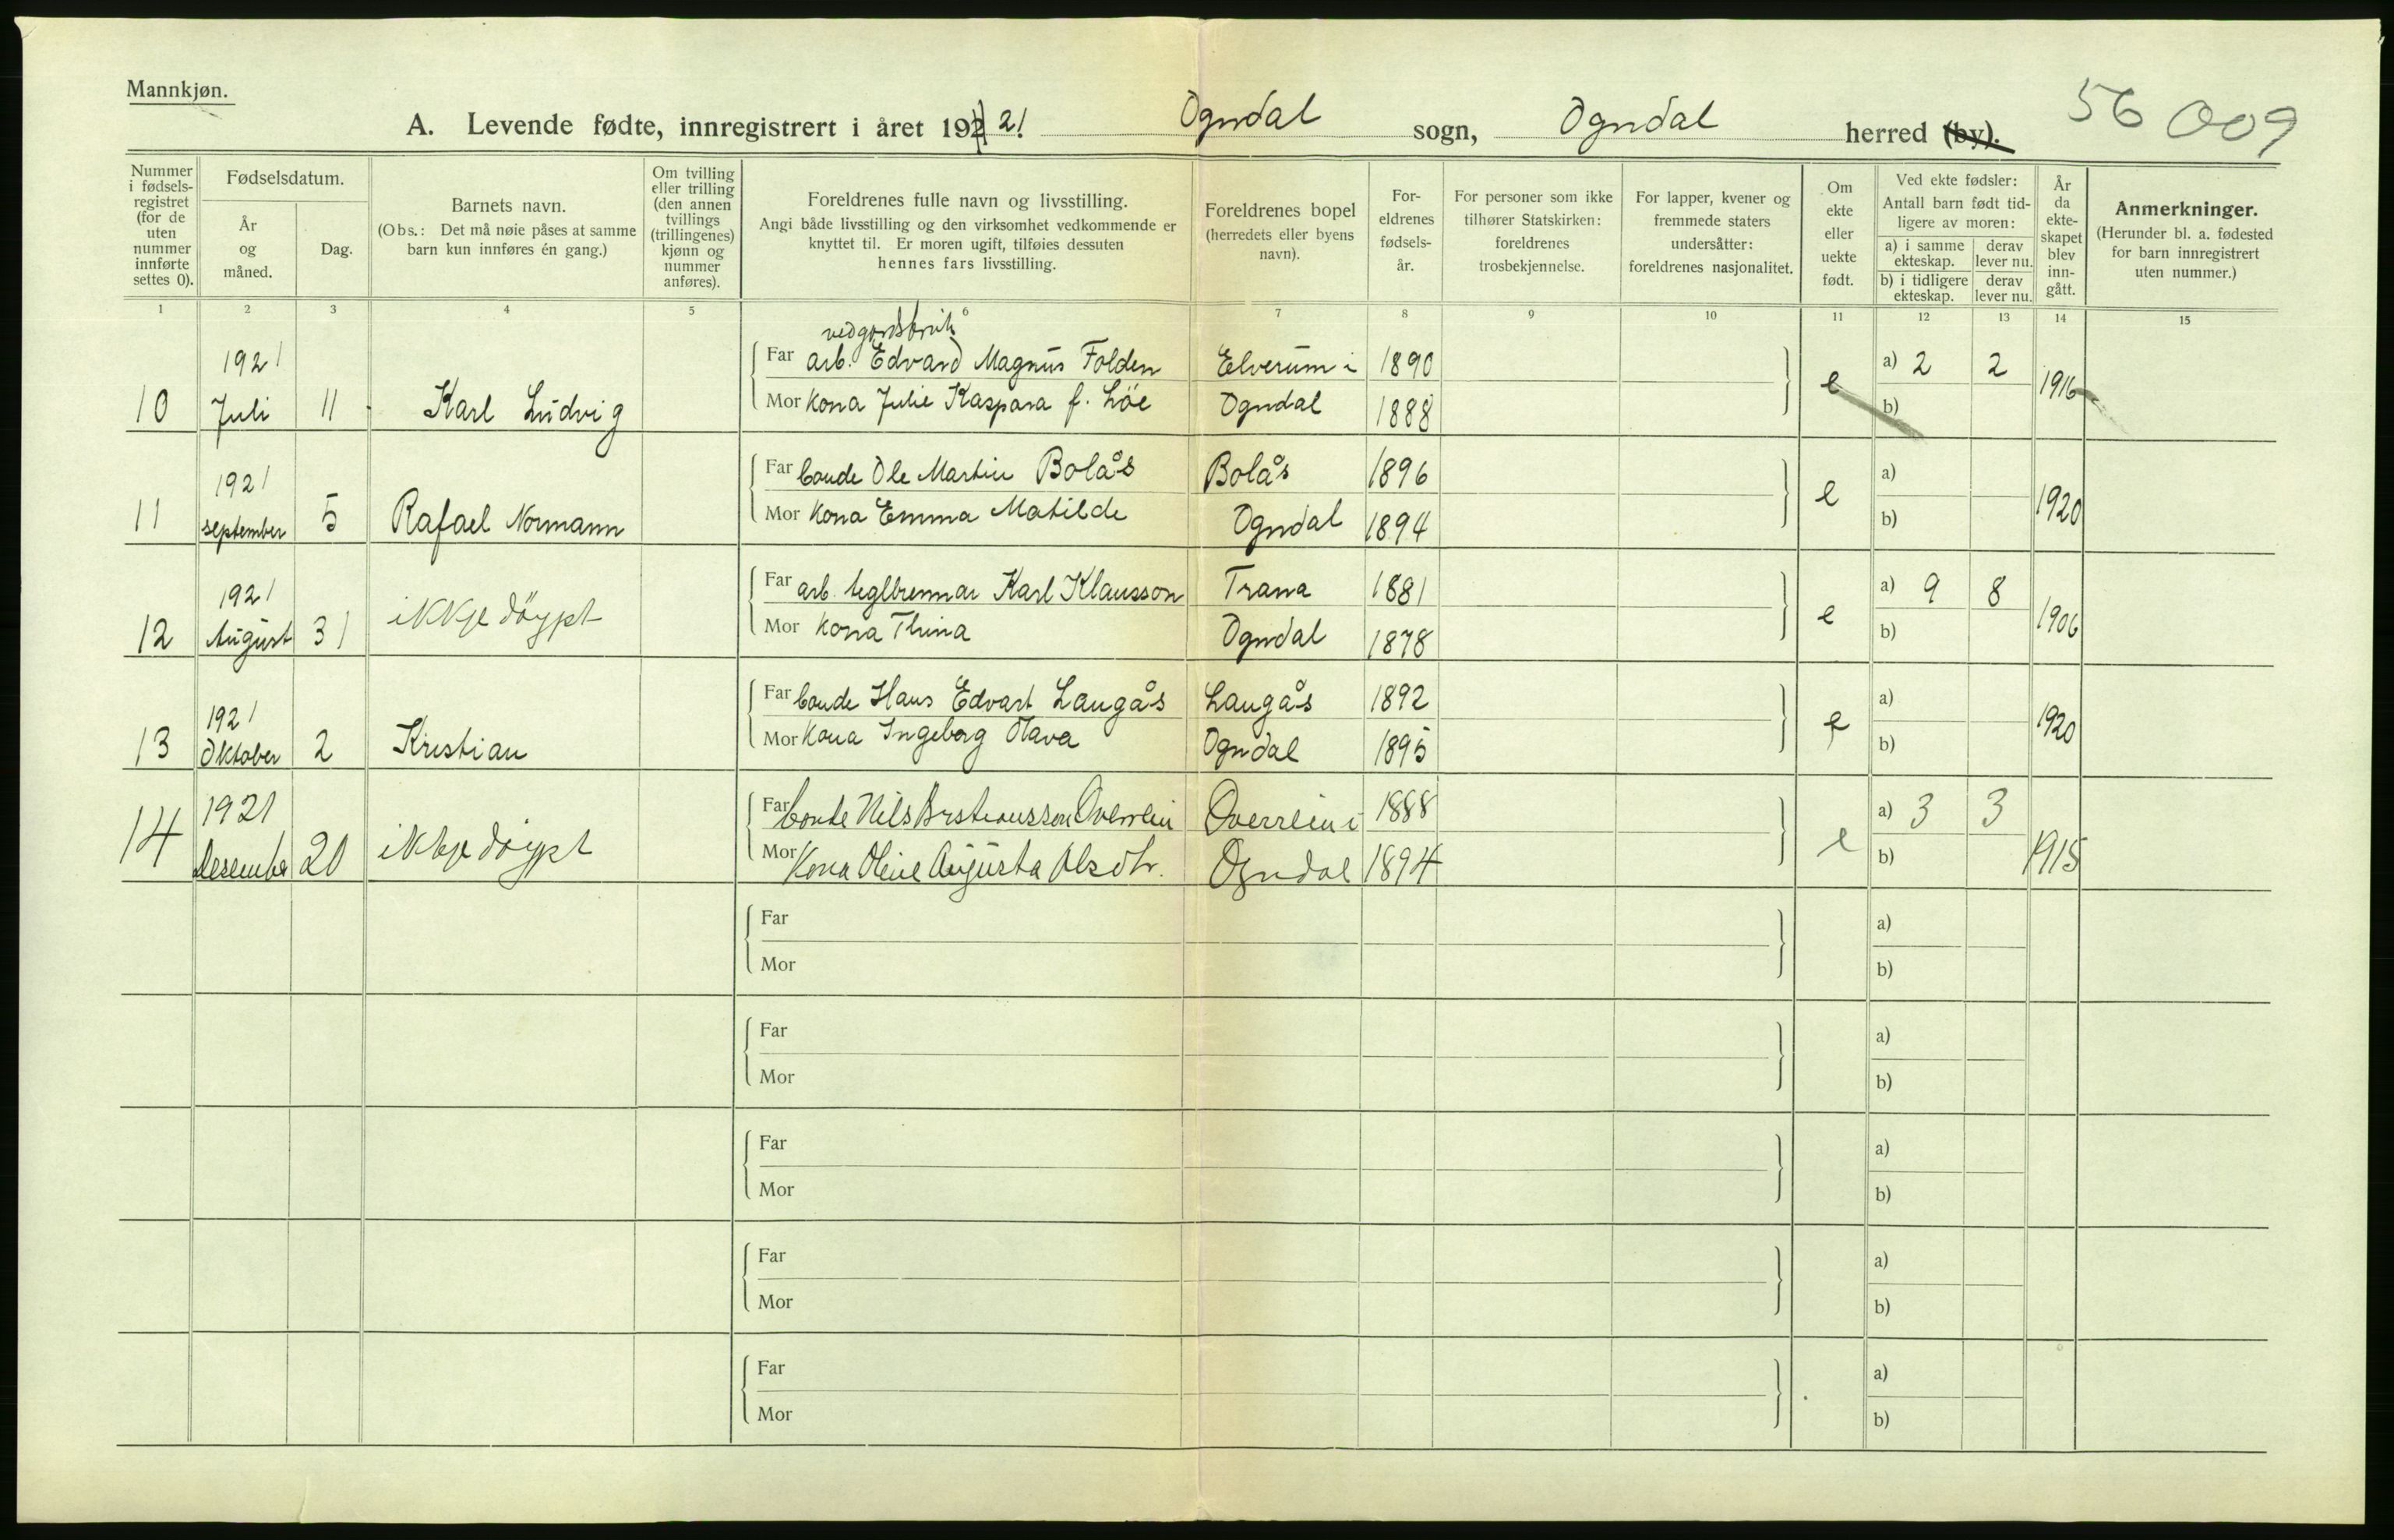 Mannkjøn.
A. Levende fødte, innregistrert i året 192 21 Ogndal sogn, Ogndal herred (by).
56 009
Nummer i fødselsregistret (for de uten nummer innførte settes 0).
Fødselsdatum.
År og måned.
Dag.
Barnets navn.
(Obs.: Det må nøie påses at samme barn kun innføres én gang.)
Om tvilling eller trilling (den annen tvillings (trillingenes) kjønn og nummer anføres).
Foreldrenes fulle navn og livsstilling.
Angi både livsstilling og den virksomhet vedkommende er knyttet til. Er moren ugift, tilføies dessuten hennes fars livsstilling.
Foreldrenes bopel (herredets eller byens navn).
Foreldrenes fødselsår.
For personer som ikke tilhører Statskirken: foreldrenes trosbekjennelse.
For lapper, kvener og fremmede staters undersåtter: foreldrenes nasjonalitet.
Om ekte eller uekte født.
Ved ekte fødsler: Antall barn født tidligere av moren:
a) i samme ekteskap. derav lever nu.
b) i tidligere ekteskap. derav lever nu.
År da ekteskapet blev inngått.
Anmerkninger.
(Herunder bl. a. fødested for barn innregistrert uten nummer.)
1 2 3 4 5 6 7 8 9 10 11 12 13 14 15
ved gardsbruk
1921 Far arb. Edvard Magnus Folden Elverum i 1890 a) 2 2
10 Juli 11 Karl Ludvig Mor Kona Julie Kaspara f. Löe Ogndal 1888 e b) 1916
1921 Far bonde Ole Martin Bolås Bolås 1896 a)
11 september 5 Rafael Normann Mor Kona Emma Matilde Ogndal 1894 e b) 1920
1921 Far arb. teglbrennar Karl Klausson Trana 1881 a) 9 8
12 August 31 ikkje döypt Mor Kona Thina Ogndal 1878 e b) 1906
1921 Far bonde Hans Edvart Langås Langås 1892 a)
13 Oktober 2 Kristian Mor Kona Ingeborg Olava Ogndal 1895 e b) 1920
1921 Far bonde Nils Overrein Overrein i 1888 a) 3 3
14 Desember 20 ikkje döypt Mor Kona Oline Augusta Olsdtr. Ogndal 1894 e b) 1915
Far a)
Mor b)
Far a)
Mor b)
Far a)
Mor b)
Far a)
Mor b)
Far a)
Mor b)